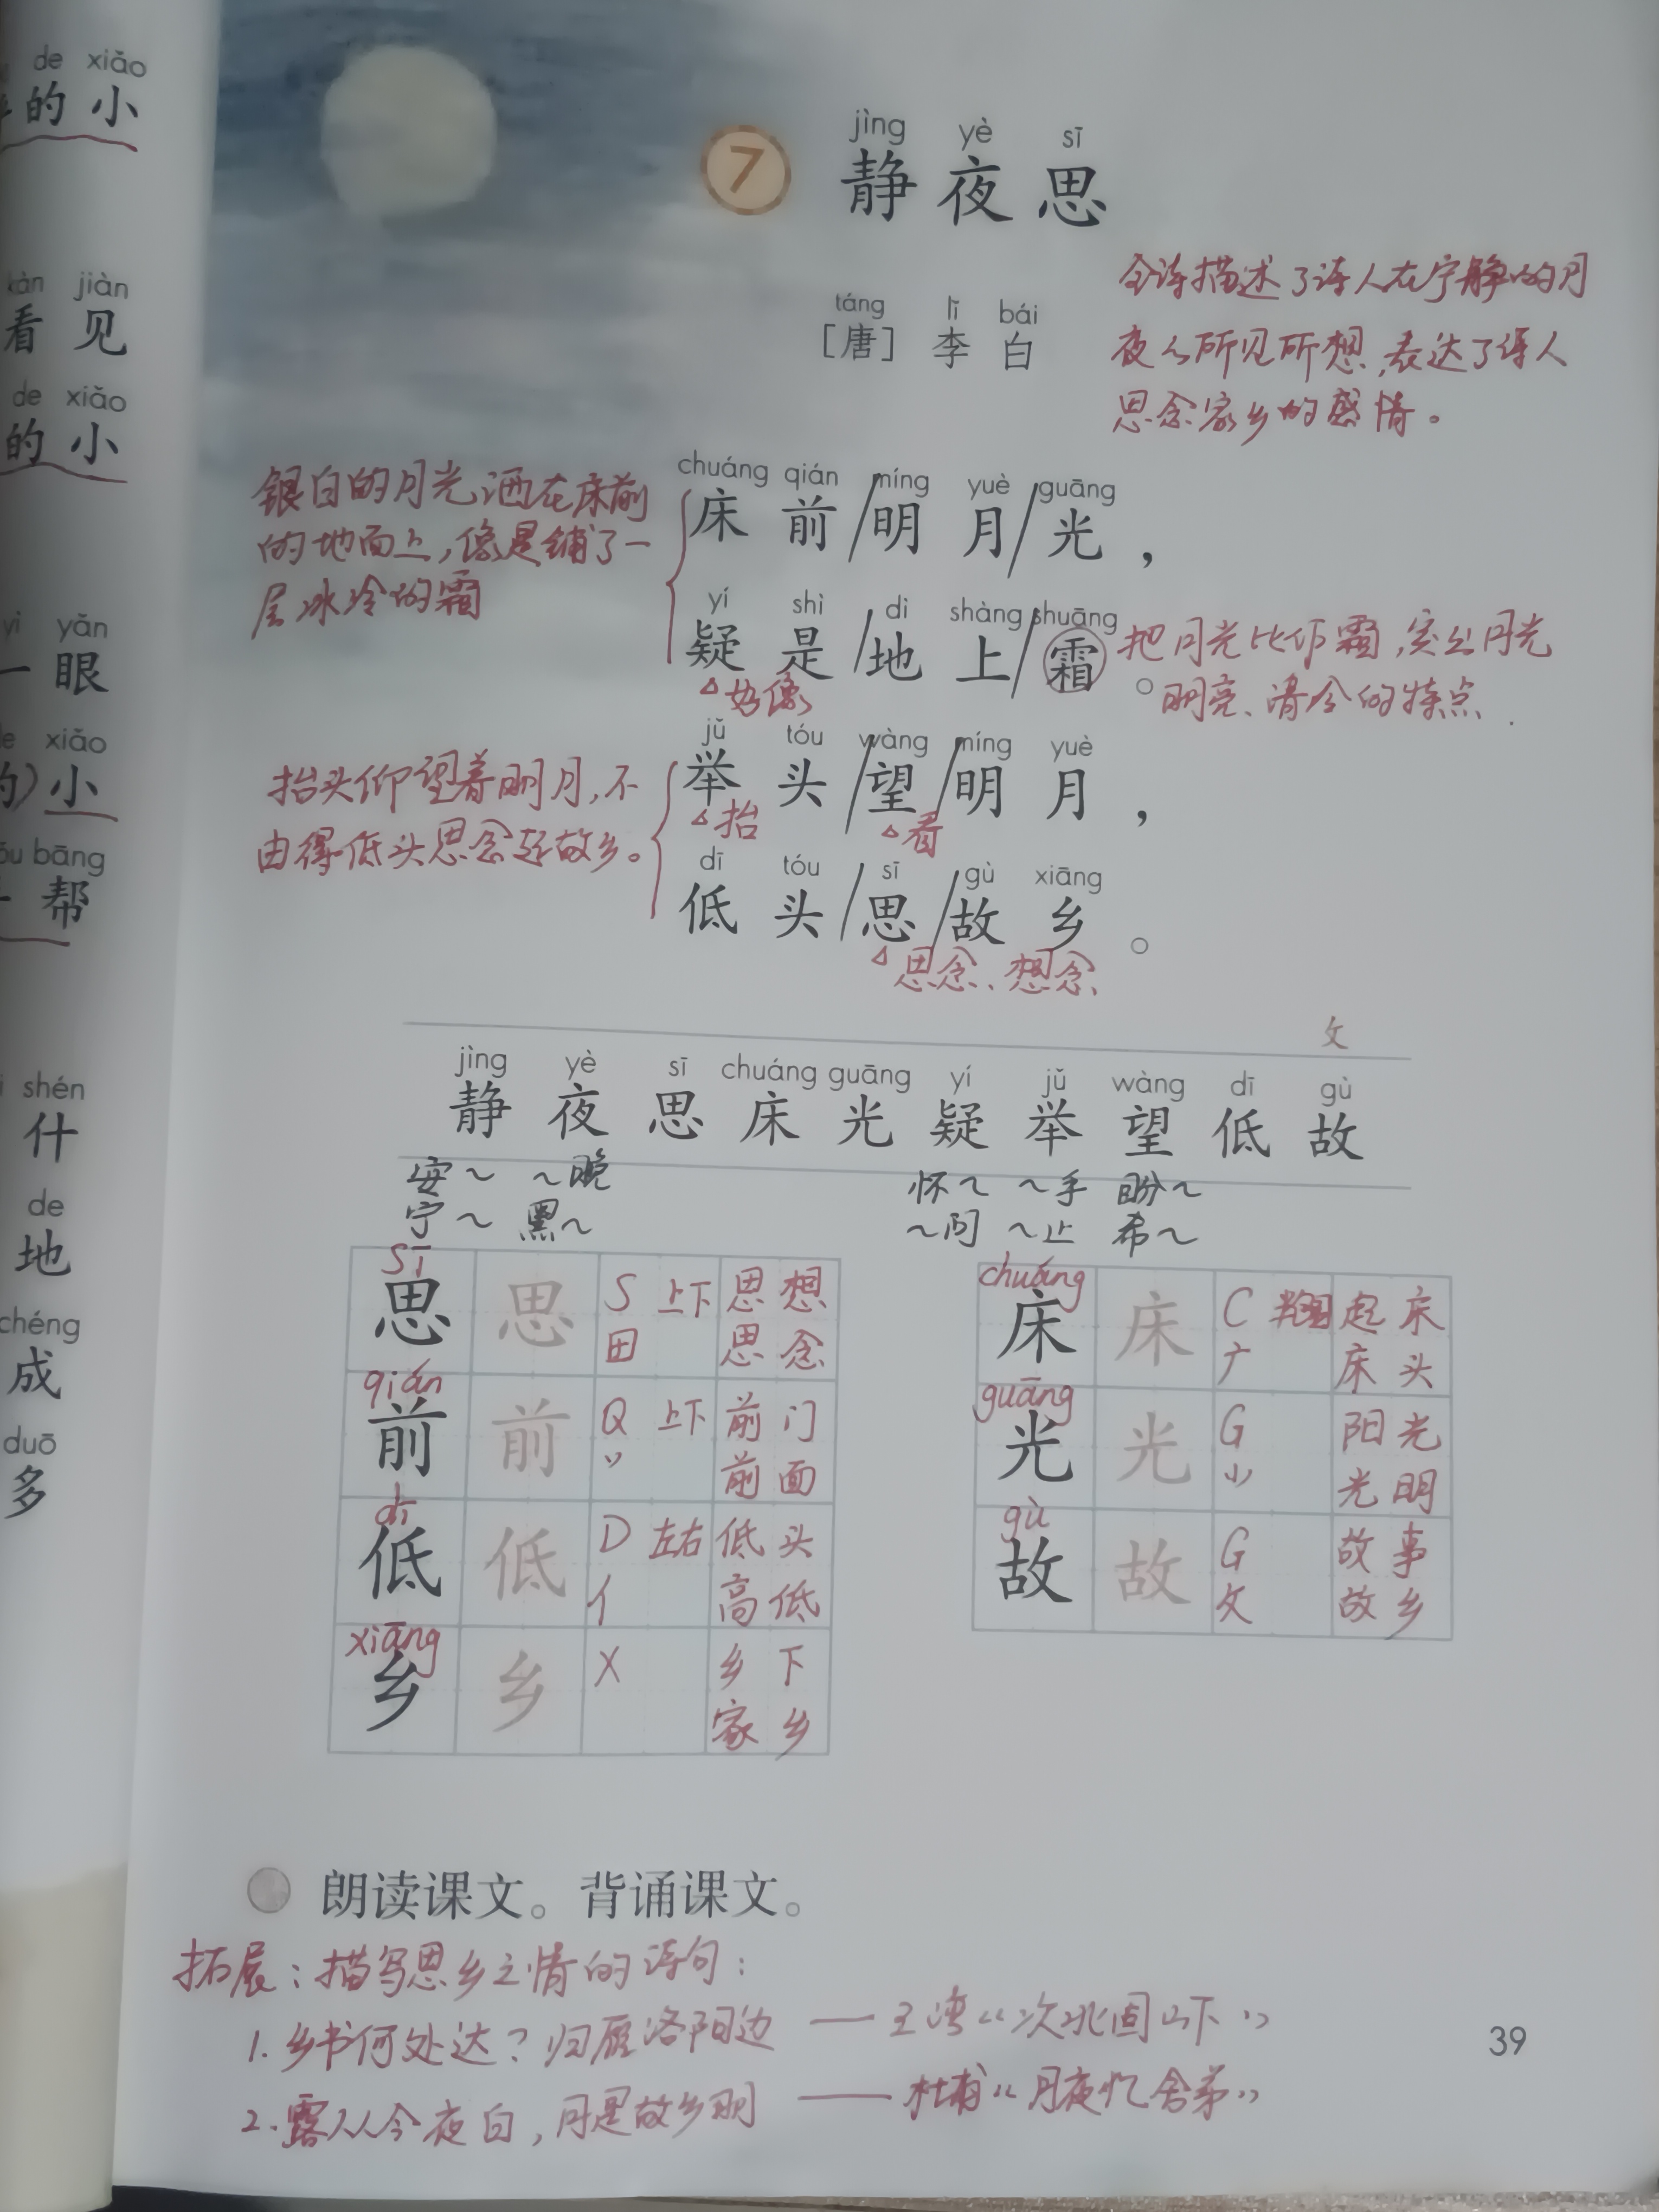 de xiǎo
的 小
kàn jiàn
看 见
de xiǎo
的 小
yì yǎn
一 眼
xiǎo
小
bāng
帮
shén
什
de
地
chéng
成
duō
多
7
jìng yè sī
静 夜 思
táng lǐ bái
[唐] 李 白
全诗描述了诗人在宁静的月
夜之所见所想,表达了诗人
思念家乡的感情。
银白的月光洒在床前
的地面上,像是铺了一
层冰冷的霜
chuáng qián míng yuè guāng
床 前/明 月/光,
yí shì dì shàng shuāng
疑 是/地 上/霜。
好像
把月光比作霜,突出月光
明亮、清冷的特点.
抬头仰望着明月,不
由得低头思念起故乡。
jǔ tóu wàng míng yuè
举 头/望/明 月,
抬 看
dī tóu sī gù xiāng
低 头/思/故 乡。
思念、想念
攵
jìng yè sī chuáng guāng yí jǔ wàng dī gù
静 夜 思 床 光 疑 举 望 低 故
安~ ~晚 怀~ ~手 盼~
宁~ 黑~ ~问 ~止 希~
sī
思 思 S 上下 思想
田 思念
qián
前 前 Q 上下 前门
丷 前面
dī
低 低 D 左右 低头
亻 高低
xiāng
乡 乡 X 乡下
家乡
chuáng
床 床 C 半包围 起床
广 床头
guāng
光 光 G 阳光
⺌ 光明
gù
故 故 G 故事
攵 故乡
朗读课文。背诵课文。
拓展:描写思乡之情的诗句:
1.乡书何处达?归雁洛阳边 —— 王湾“次北固山下”
2.露从今夜白,月是故乡明 —— 杜甫“月夜忆舍弟”
39